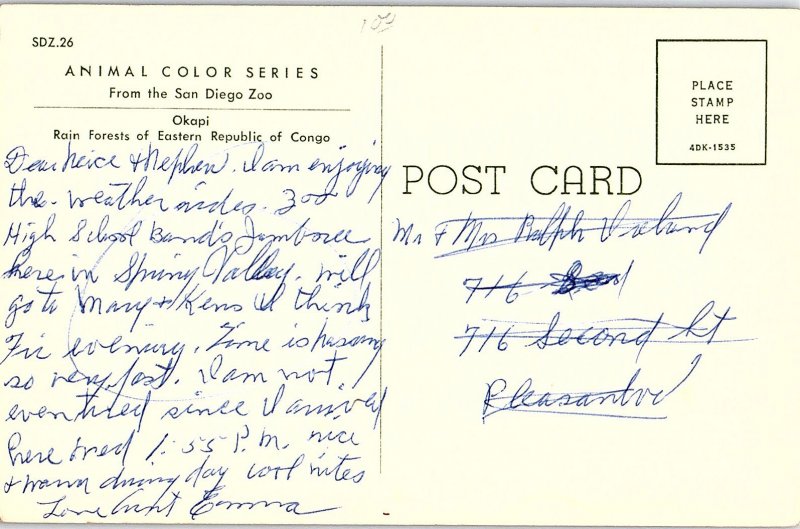 103
SDZ.26
ANIMAL COLOR SERIES
From the San Diego Zoo
Okapi
Rain Forests of Eastern Republic of Congo
PLACE
STAMP
HERE
4DK-1535
POST CARD
Dear Neice & Nephew. I am enjoying
the weather rides. 300
High School Bands Jamboree
here in Spring Valley. Will
go to Mary & Kens I think
Fri evening. Time is passing
so very fast. I am not
even tired since I arrived
here Wed 1:55 P.M. nice
& warm during day cool nites
Love Aunt Emma
Mr & Mrs Ralph
716
716 Second St
Pleasanton